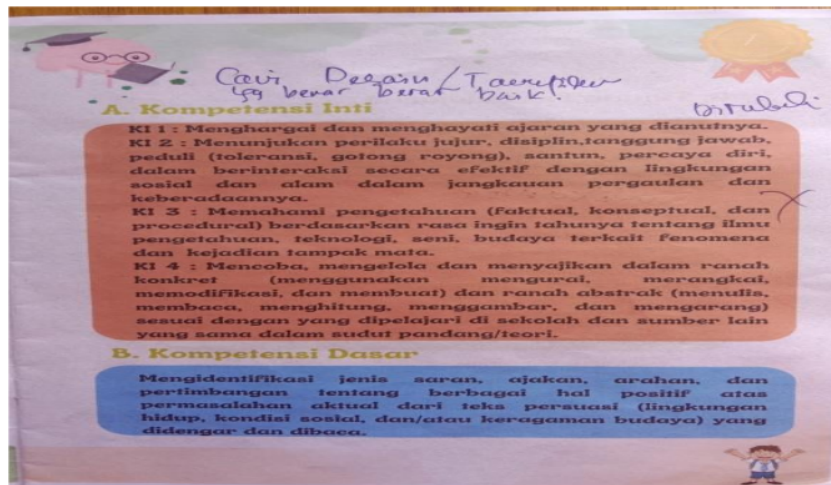 Cari Desain /
yg benar benar baik.
A. Kompetensi Inti
KI 1 : Menghargai dan menghayati ajaran yang dianutnya.
KI 2 : Menunjukan perilaku jujur, disiplin,tanggung jawab,
peduli (toleransi, gotong royong), santun, percaya diri,
dalam berinteraksi secara efektif dengan lingkungan
sosial dan alam dalam jangkauan pergaulan dan
keberadaannya.
KI 3 : Memahami pengetahuan (faktual, konseptual, dan
procedural) berdasarkan rasa ingin tahunya tentang ilmu
pengetahuan, teknologi, seni, budaya terkait fenomena
dan kejadian tampak mata.
KI 4 : Mencoba, mengelola dan menyajikan dalam ranah
konkret (menggunakan mengurai, merangkai,
memodifikasi, dan membuat) dan ranah abstrak (menulis,
membaca, menghitung, menggambar, dan mengarang)
sesuai dengan yang dipelajari di sekolah dan sumber lain
yang sama dalam sudut pandang/teori.
B. Kompetensi Dasar
Mengidentifikasi jenis saran, ajakan, arahan, dan
pertimbangan tentang berbagai hal positif atas
permasalahan aktual dari teks persuasi (lingkungan
hidup, kondisi sosial, dan/atau keragaman budaya) yang
didengar dan dibaca.